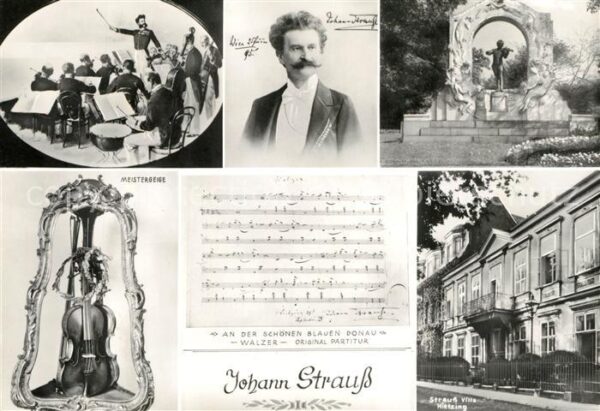 Johann Strauß
MEISTERGEIGE
AN DER SCHÖNEN BLAUEN DONAU
WALZER — ORIGINAL PARTITUR
Johann Strauß
Strauß Villa
Hietzing